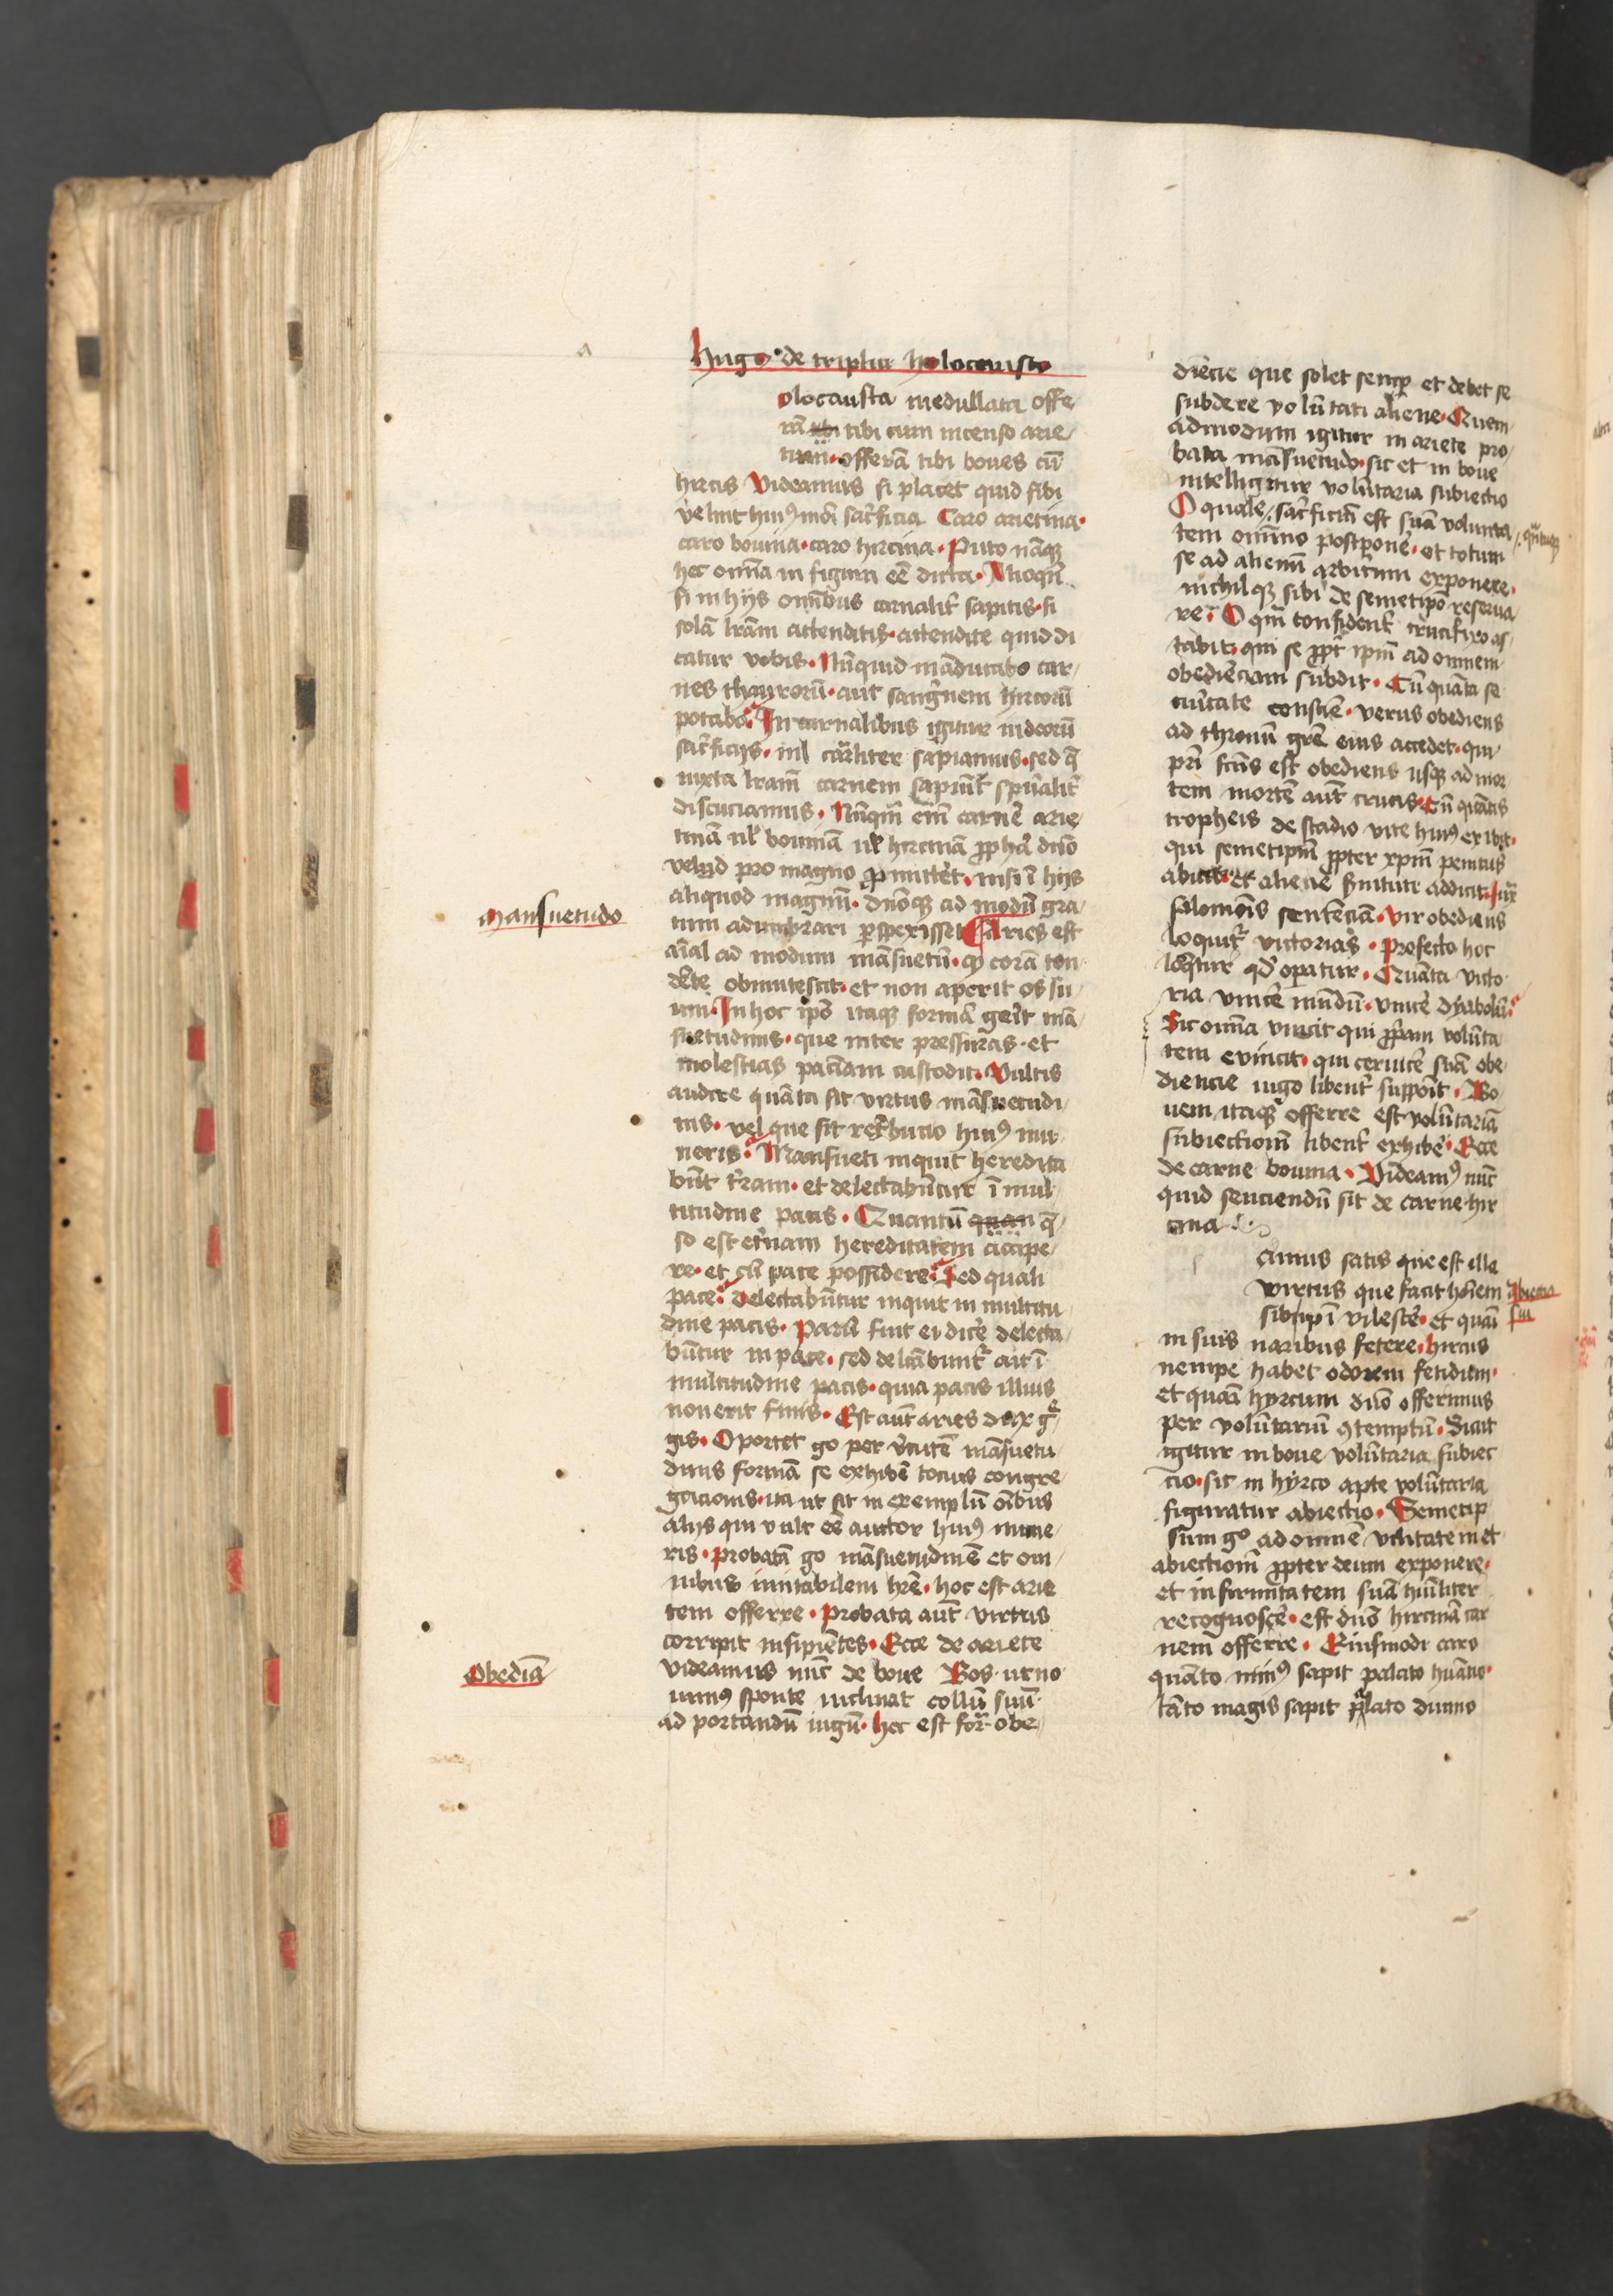 Hugo de triplici holocausto
olocausta medullata offe
rā tibi cum incenso arie
tum. offerā tibi boues cū
hircis Videamus si placet quid sibi
velint huiꝰmōi sacͥficia Caro arietina.
caro bouina. caro hircina. Puto nāqꝫ
hec omīa in figura eē dicta. Alioqn̄
si in hijs omībus carnalit̄ sapitis. si
solā lr̄am attenditis. attendite quid di
catur vobis. Nūquid māducabo car
nes thaurorū. aut sangͥnem hircorū
potabo. In carnalibus igitur iudeorū
sacͥficijs. nil carͣliter sapiamus. sed q̄
iuxta lr̄am carnem sapiūt spūalit̄
discuciamus. Nūqͣm em̄ carnē arie
tinā ul̄ bouinā ul̄ hircinā ꝓpha dn̄o
velud pro magno ꝓmitteret. nisi ī hijs
aliquod magnū. dn̄oqꝫ ad modū gra
tum adumbrari ꝑspexisset Aries est
aīal ad modum māsuetū. qꝫ corā ton
dēte obmutescit. et non aperit os su
um. In hoc ip̄o itaqꝫ formā gerit mā
suetudinis. que inter pressuras. et
molestias paciam custodit. Vultis
audire quāta sit virtus māsuetudi
nis. vel que sit retͥbucio huiꝰ mu
neris. Mansueti inquit heredita
būt t̄ram. et delectabūtur ī mul
titudine pacis. Quantū quan q̄
so est et̄nam hereditatem accipe
re. et cū pace possidere. Sed quali
pace. delectabūtur inquit in multitu
dine pacis. Parū fuit ei dicē delecta
būtur in pace. sed delc̄abunt̄ ait ī
multitudine pacis. quia pacis illius
non erit finis. Est aūt aries dux gͤ
gis. Oportet go per v̄tutē māsuetu
dinis formā se exhibē tocius congre
gacionis. ita ut sit in exemplū oībus
alijs qui vult eē auctor huiꝰ mune
ris. Probatā go māsuetudinē et om
nibus imitabilem hr̄e. hoc est arie
tem offerre. Probata aūt virtus
corripit insipiētes. Ecce de ariete
videamus nūc de boue Bos. ut no
uimꝰ sponte inclinat collū suū.
ad portandū iugū. hec est for͛. obe
Mansuetudo
Obediā
diēcie que solet semꝑ et debet se
subdere volūtati aliene. Quem
admodum igitur in ariete pro
bata māsuetudo. sic et in boue
intelligitur volūtaria subiectio
O quale sacͥficiū est suā volunta
tem omīno postponē. et totum
se ad alienū arbitrium exponere.
nichilqꝫ sibi de semetip̄o reserua
re. O qm̄ confident̄ crucifixo as
tabit. qui se ꝓpt̄ ip̄m ad omnem
obediēciam subdit. Cū quāta se
curitate consciē. verus obediens
ad thronū grē eius accedet. qui
pr̄i fc̄us est obediens usqꝫ ad mor
tem mortē aūt crucis. Cū quātis
tropheis de stadio vite huiꝰ exibit.
qui semetip̄m ꝓpter xp̄m penitus
abiicit. et aliene s̄uituti addicit. iux̄
salomōis sentēciā. Vir obediens
loquit̄ victorias. Profecto hoc
loqͥtur qd̄ operatur. Quāta victo
ria vincē mūdū. vincē dyabolū.
Sic omīa vincit qui ꝓpͥam volūta
tem evincit. qui ceruicē suā obe
diencie iugo libent̄ suppōit. Bo
uem itaqꝫ offerre est volūtariā
subiectionē libent̄ exhibē. Ecce
de carne bouina. Videamꝰ nūc
quid senciendū sit de carne hir
cina
cimus satis que est illa
virtus que facit hōīem
sibiip̄i vilescē. et quasi
in suis naribus fetere. hircus
nempe habet odorem fetidum.
et quasi hyrcum dn̄o offerimus
per volūtariū ꝯtemptū. Sicut
igitur in boue volūtaria subiec
cio. sic in hyrco apte volūtaria
figuratur abiectio. Semetip
sum gͦ ad omnē vilitatem et
abiectionē ꝓpter deum exponere.
et infirmitatem suā hūīliter
recognoscē. est dn̄o hircinā car
nem offerre. Eiusmodi caro
quāto minꝰ sapit palato hūāno.
tāto magis sapit palato diuino
abiectio
sui